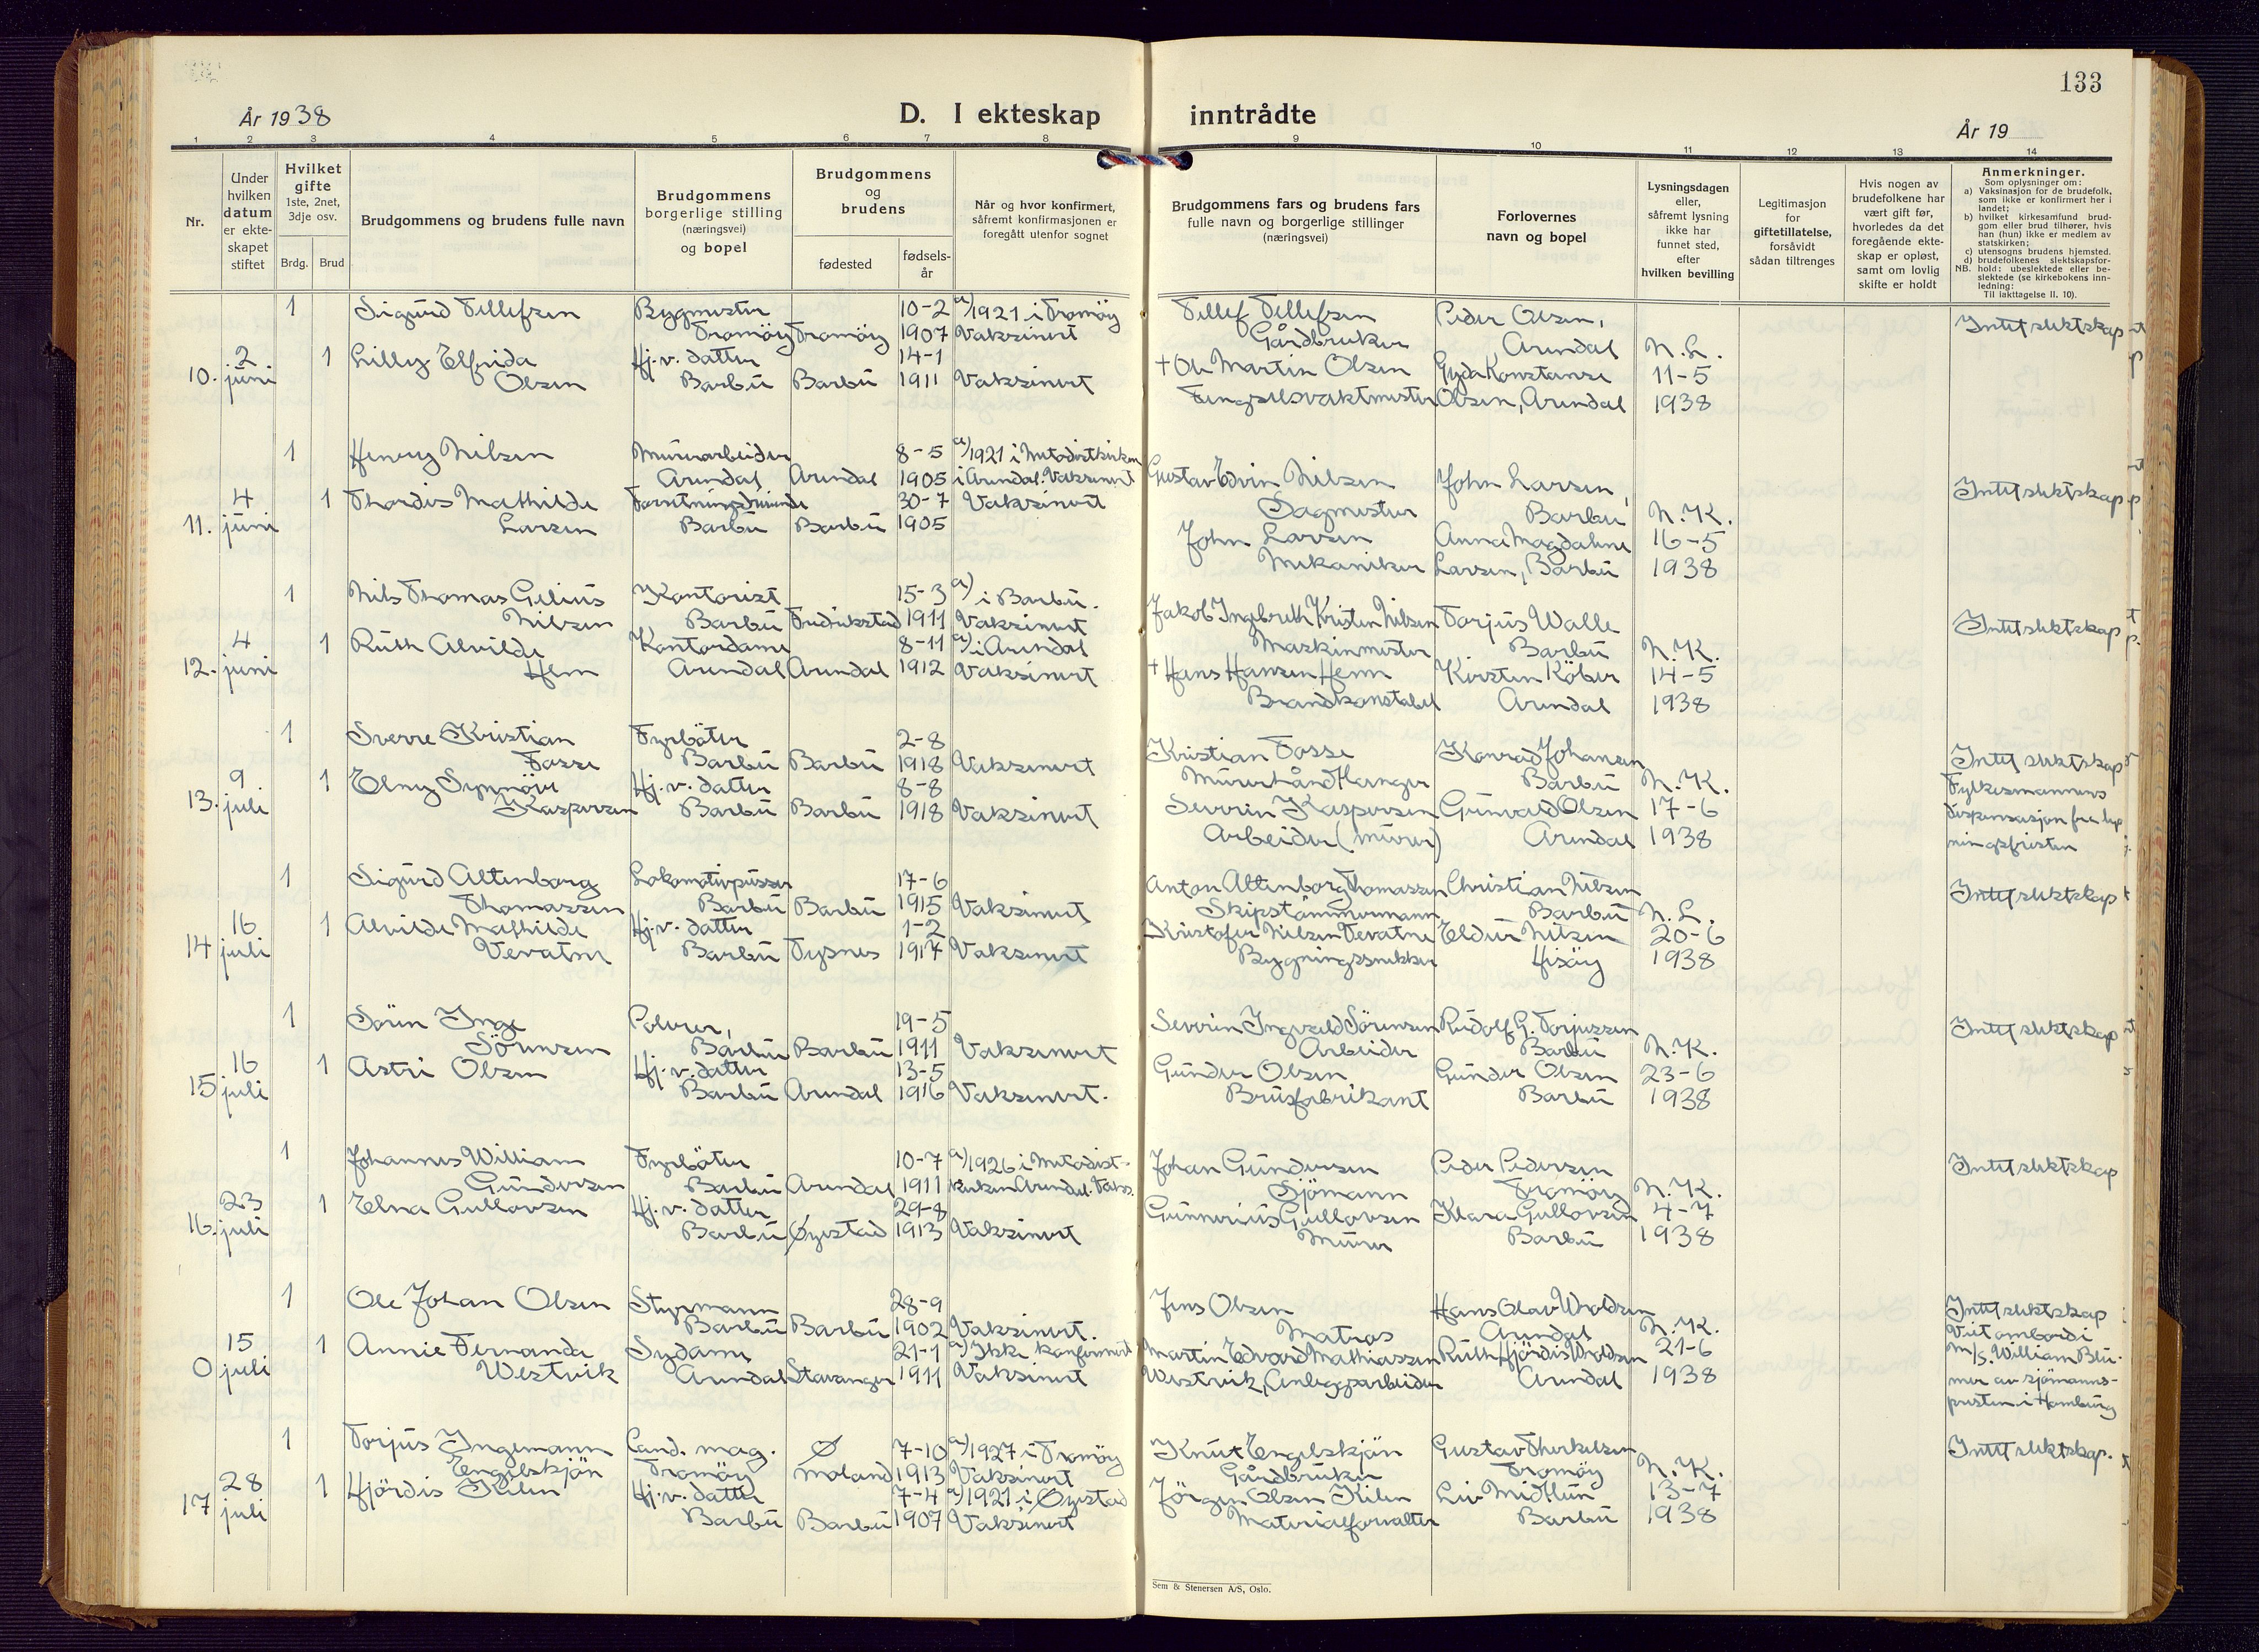 133
År 1938
D. I ekteskap inntrådte
År 19
1 2 3 4 5 6 7 8 9 10 11 12 13 14
Nr.
Under hvilken datum er ekteskapet stiftet
Hvilket gifte 1ste, 2net, 3dje osv.
Brdg. Brud
Brudgommens og brudens fulle navn
Brudgommens borgerlige stilling (næringsvei) og bopel
Brudgommens og brudens
fødested
fødselsår
Når og hvor konfirmert, såfremt konfirmasjonen er foregått utenfor sognet
Brudgommens fars og brudens fars fulle navn og borgerlige stillinger (næringsvei)
Forlovernes navn og bopel
Lysningsdagen eller, såfremt lysning ikke har funnet sted, efter hvilken bevilling
Legitimasjon for giftetillatelse, forsåvidt sådan tiltrenges
Hvis nogen av brudefolkene har vært gift før, hvorledes da det foregående ekteskap er opløst, samt om lovlig skifte er holdt
Anmerkninger.
Som oplysninger om:
a) Vaksinasjon for de brudefolk, som ikke er konfirmert her i landet;
b) hvilket kirkesamfund brudgom eller brud tilhører, hvis han (hun) ikke er medlem av statskirken;
c) utensogns brudens hjemsted.
d) brudefolkenes slektskapsforhold: ubeslektede eller beslektede (se kirkebokens innledning:
NB.
Til iakttagelse II. 10).
1 Sigurd Tellefsen Bygmester 10-2 a) 1921 i Tromöy Tellef Tellefsen Peder Olsen, Intet slektskap
Tromöy Tromöy 1907 Vaksinert Gårdbruker Arendal N.L.
2 1 Lilly Elfrida Hj.v. datter 14-1 † Ole Martin Olsen Gyda Konstanse 11-5
10. juni Olsen Barbu Barbu 1911 Vaksinert Fengselsvaktmester Olsen, Arendal 1938
1 Henry Nilsen Murerarbeider 8-5 a) 1921 i Metodistkirken Gustav Edvin Nilsen John Larsen, Intet slektskap
Arendal Arendal 1905 i Arendal. Vaksinert Sagmester Barbu N.K.
4 1 Thordis Mathilde Forretningsdrivende 30-7 Vaksinert John Larsen Anna Magdalene 16-5
11. juni Larsen Barbu Barbu 1905 Mekaniker Larsen, Barbu 1938
1 Nils Thomas Gelius Kontorist 15-3 a) i Barbu. Jakob Ingebreth Kristen Nilsen Torjus Walle Intet slektskap
Nilsen Barbu Fredrikstad 1911 Vaksinert Maskinmester Barbu N.K.
4 1 Ruth Alvilde Kontordame 8-11 a) i Arendal † Hans Hansen Hem Kirsten Köber 14-5
12. juni Hem Arendal Arendal 1912 Vaksinert Brandkonstabel Arendal 1938
1 Sverre Kristian Fyrböter 2-8 Kristian Fosse Konrad Johansen Intet slektskap
Fosse Barbu Barbu 1918 Vaksinert Murerhåndlanger Barbu N.K. Fylkesmannens
9 1 Elny Synnöve Hj.v. datter 8-8 Severin Kaspersen Grunvald Olsen 17-6 dispensasjon fra lys
13. juli Kaspersen Barbu Barbu 1918 Vaksinert Arbeider (murer) Arendal 1938 ningsfristen
1 Sigurd Altenborg Lokomotivpusser 17-6 Anton Altenborg Thomassen Christian Nilsen Intet slektskap
Thomassen Barbu Barbu 1915 Vaksinert Skipstömmermann Barbu N.L.
16 1 Alvilde Mathilde Hj.v. datter 1-2 Kristofer Nilsen Vevatne Eldur Nilsen 20-6
14 juli Vevatne Barbu Tysnes 1917 Vaksinert Bygningssnekker Hisöy 1938
1 Sören Inge Polerer, 19-5 Severin Ingvald Sörensen Rudolf G. Torjussen Intet slektskap
Sörensen Barbu Barbu 1911 Vaksinert Arbeider Barbu N.K.
16 1 Astri Olsen Hj.v. datter 13-5 Gunder Olsen Gunder Olsen 23-6
15 juli Barbu Arendal 1916 Vaksinert. Brusfabrikant Barbu 1938
1 Johannes William Fyrböter 10-7 a) 1926 i Metodist- Johan Gundersen Peder Pedersen Intet slektskap
Gundersen Barbu Arendal 1911 kirken Arendal. Vaks. Sjömann Tromöy N.K.
23 1 Elna Gullovsen Hj.v. datter 29-8 Gunnerius Gullovsen Klara Gullovsen 4-7
16. juli Barbu Øyestad 1913 Vaksinert Murer Barbu 1938
1 Ole Johan Olsen Styrmann 28-9 Jens Olsen Hans Olav Woldsen Intet slektskap
Barbu Barbu 1902 Vaksinert. Matros Arendal N.K. Viet ombord i
15 1 Annie Fernande Sydame, 21-1 a) Ikke konfirmert Martin Edvard Mathiassen Ruth Hjördis Woldsen 21-6 M/S. William Blu-
0 juli Westvik Arendal Stavanger 1911 Vaksinert Westvik, Anleggsarbeider Arendal 1938 mer av sjömanns-
presten i Hamburg
1 Torjus Ingemann Cand. mag. Ø 7-10 a) 1927 i Tromöy Knut Engelskjön Gustav Therkelsen Intet slektskap.
Engelskjön Tromöy Moland 1913 Vaksinert Gårdbruker Tromöy N.K.
28 1 Hjördis Kilen Hj.v. datter 7-4 a) 1921 i Øyestad Jörgen Olsen Kilen Liv Midtlun 13-7
17 juli Barbu Barbu 1907 Vaksinert Materialforvalter Barbu 1938
Sem & Stenersen A/S, Oslo.